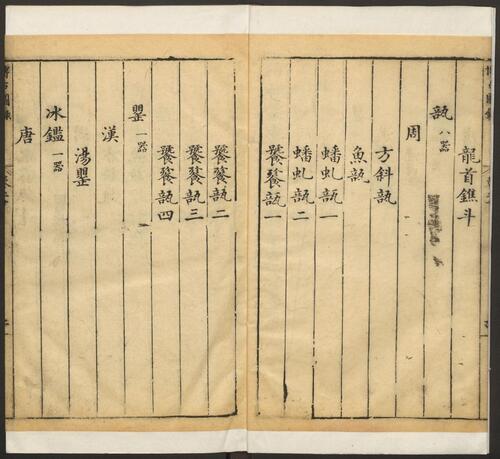 龍首鐎斗
瓿 八器
周
方斜瓿
魚瓿
蟠虬瓿一
蟠虬瓿二
饕餮瓿一
饕餮瓿二
饕餮瓿三
饕餮瓿四
罌 一器
漢
湯罌
冰鑑 一器
唐